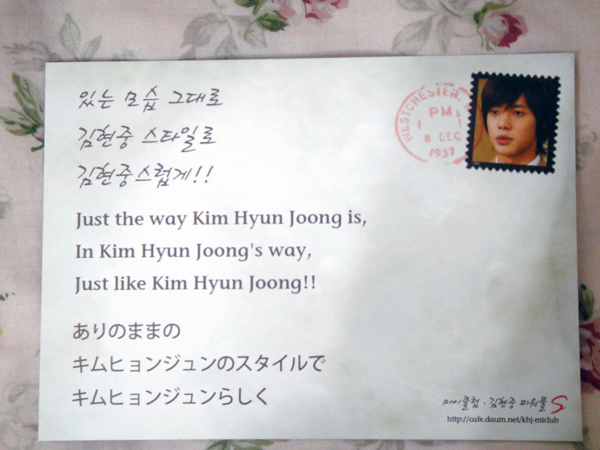 있는 모습 그대로
김현중 스타일로
김현중스럽게!!
Just the way Kim Hyun Joong is,
In Kim Hyun Joong's way,
Just like Kim Hyun Joong!!
ありのままの
キムヒョンジュンのスタイルで
キムヒョンジュンらしく
WESTCHESTER,
PM
8 DEC
1937
마이클럽 · 김현중 파워풀 S
http://cafe.daum.net/khj-miclub